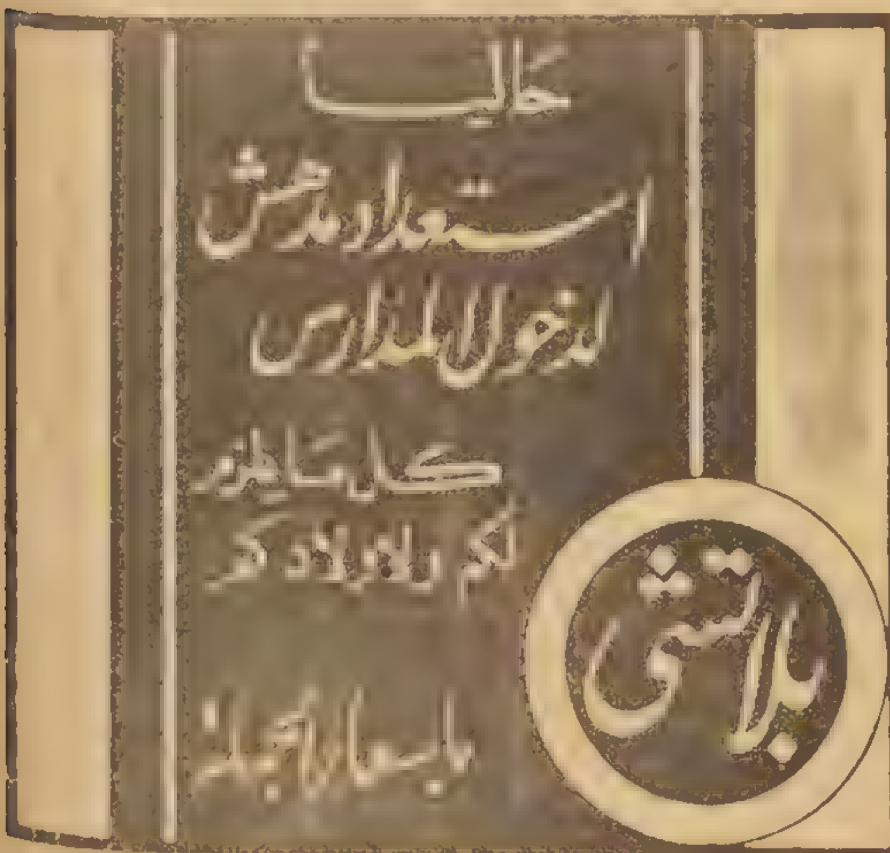 حَاليــاً
استعداد مدهش
لدخول المدارس
كل مَا يلزم
لكم ولأولادكم
بأسعار الجملة
بلاتشى